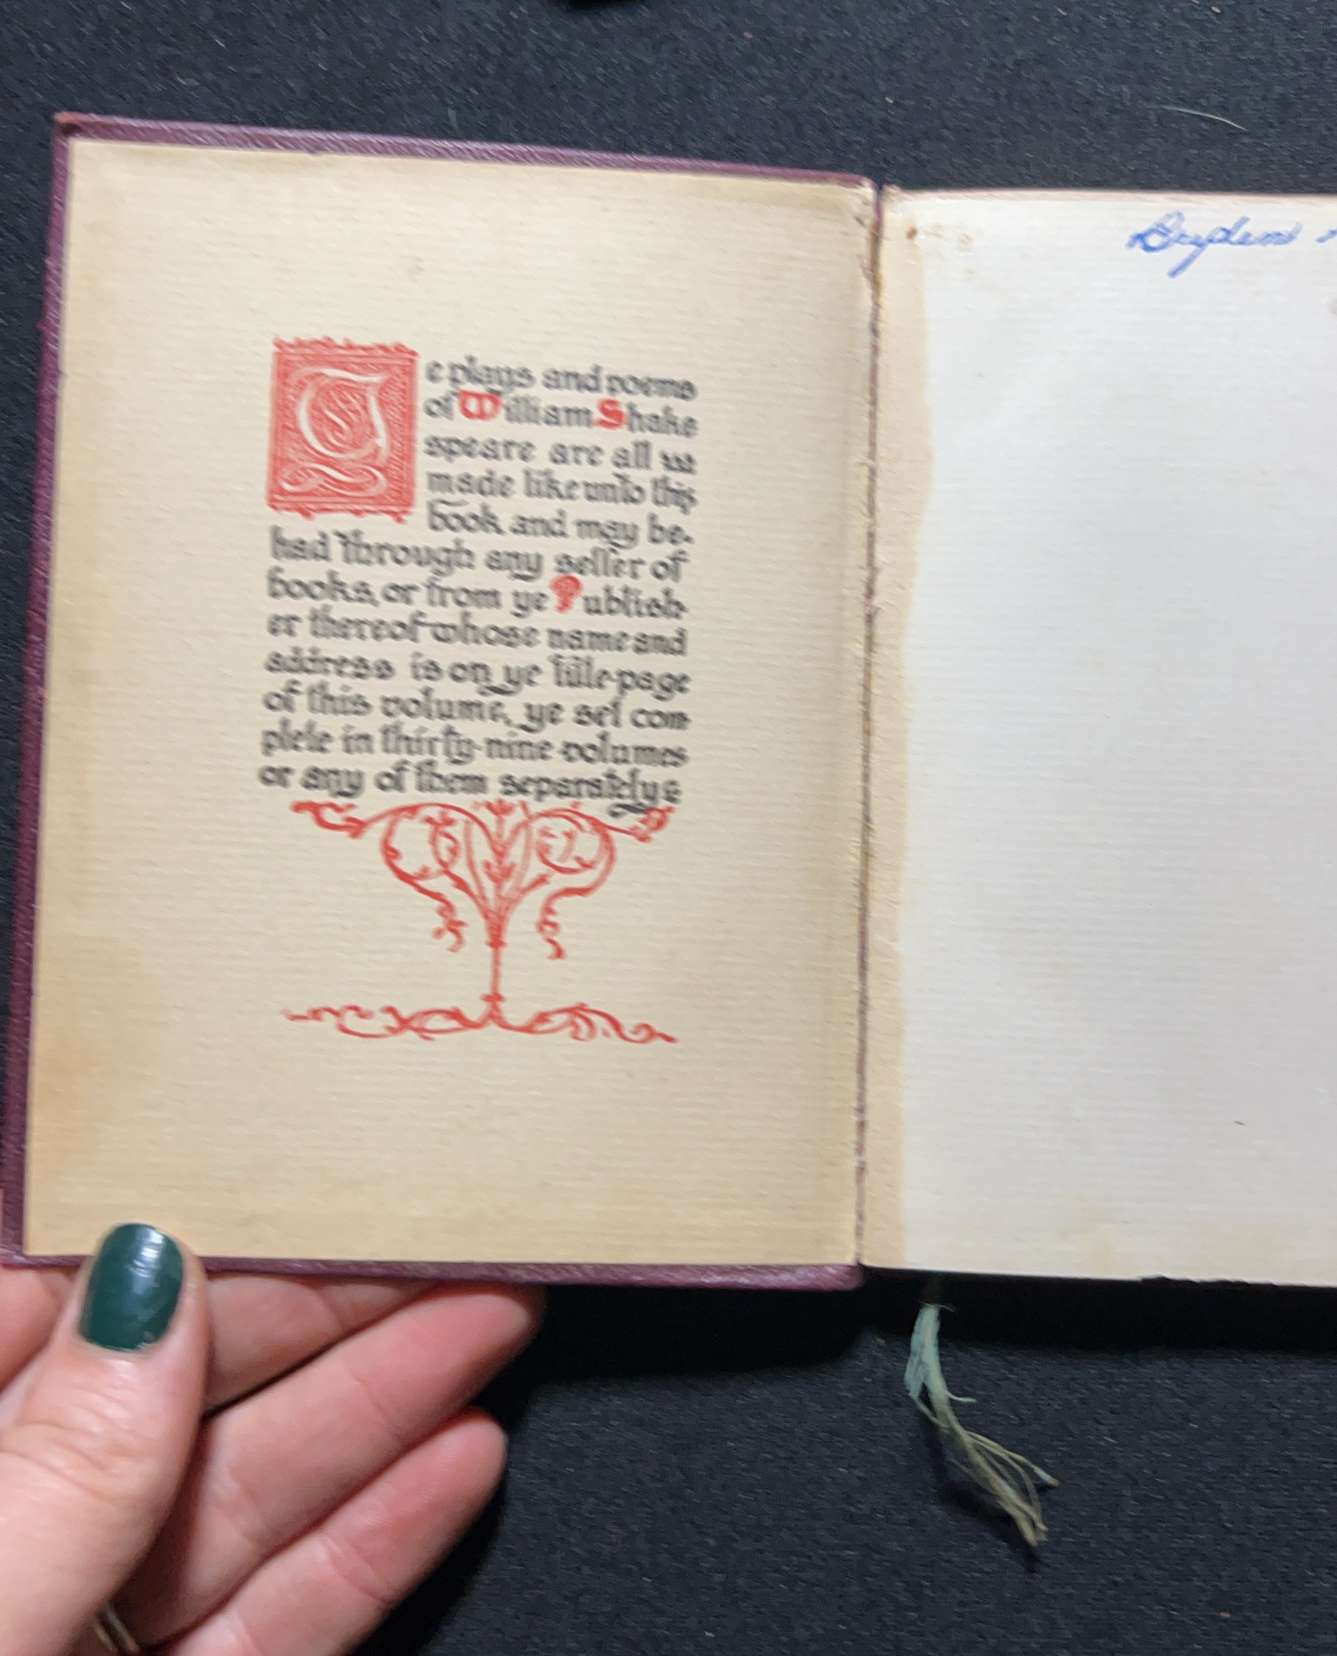 Te plays and poems
of William Shake
speare are all
made like unto this
book and may be
had through any seller of
books, or from ye Publish
er thereof whose name and
address is on ye title-page
of this volume, ye set com
plete in thirty-nine volumes
or any of them separately